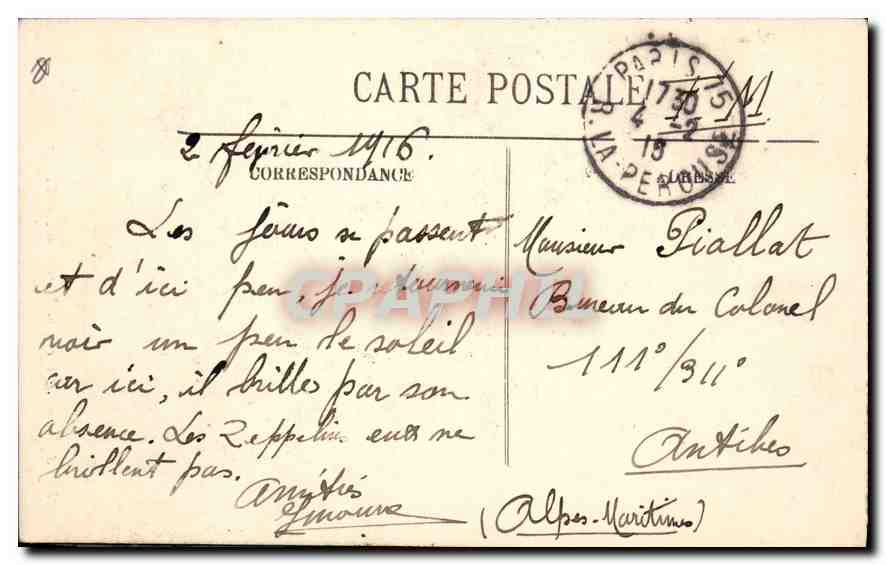 CARTE POSTALE
F. M
PARIS 15
1730
4 -2
R. LA-PEROUSE
2 février 1916.
CORRESPONDANCE
ADRESSE
Les jours se passent
et d'ici peu, je retournerai
voir un peu le soleil
car ici, il brille par son
absence. Les Zeppelins eux ne
brillent pas.
Amitiés
Monsieur Piallat
Bureau du Colonel
111º/311º
Antibes
(Alpes-Maritimes)
CPAPHIL